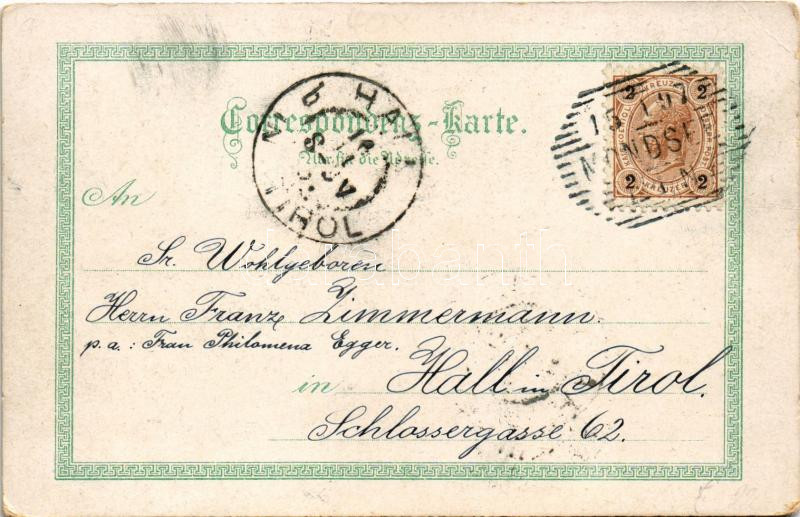 Correspondenz-Karte.
Nur für die Adresse.
HALL
TIROL
2 KREUZER 2
2 KREUZER 2
MONDSEE
An
Sr. Wohlgeboren
Herrn Franz Zimmermann.
p. a.: Frau Philomena Egger.
in Hall in Tirol.
Schlossergasse 62.